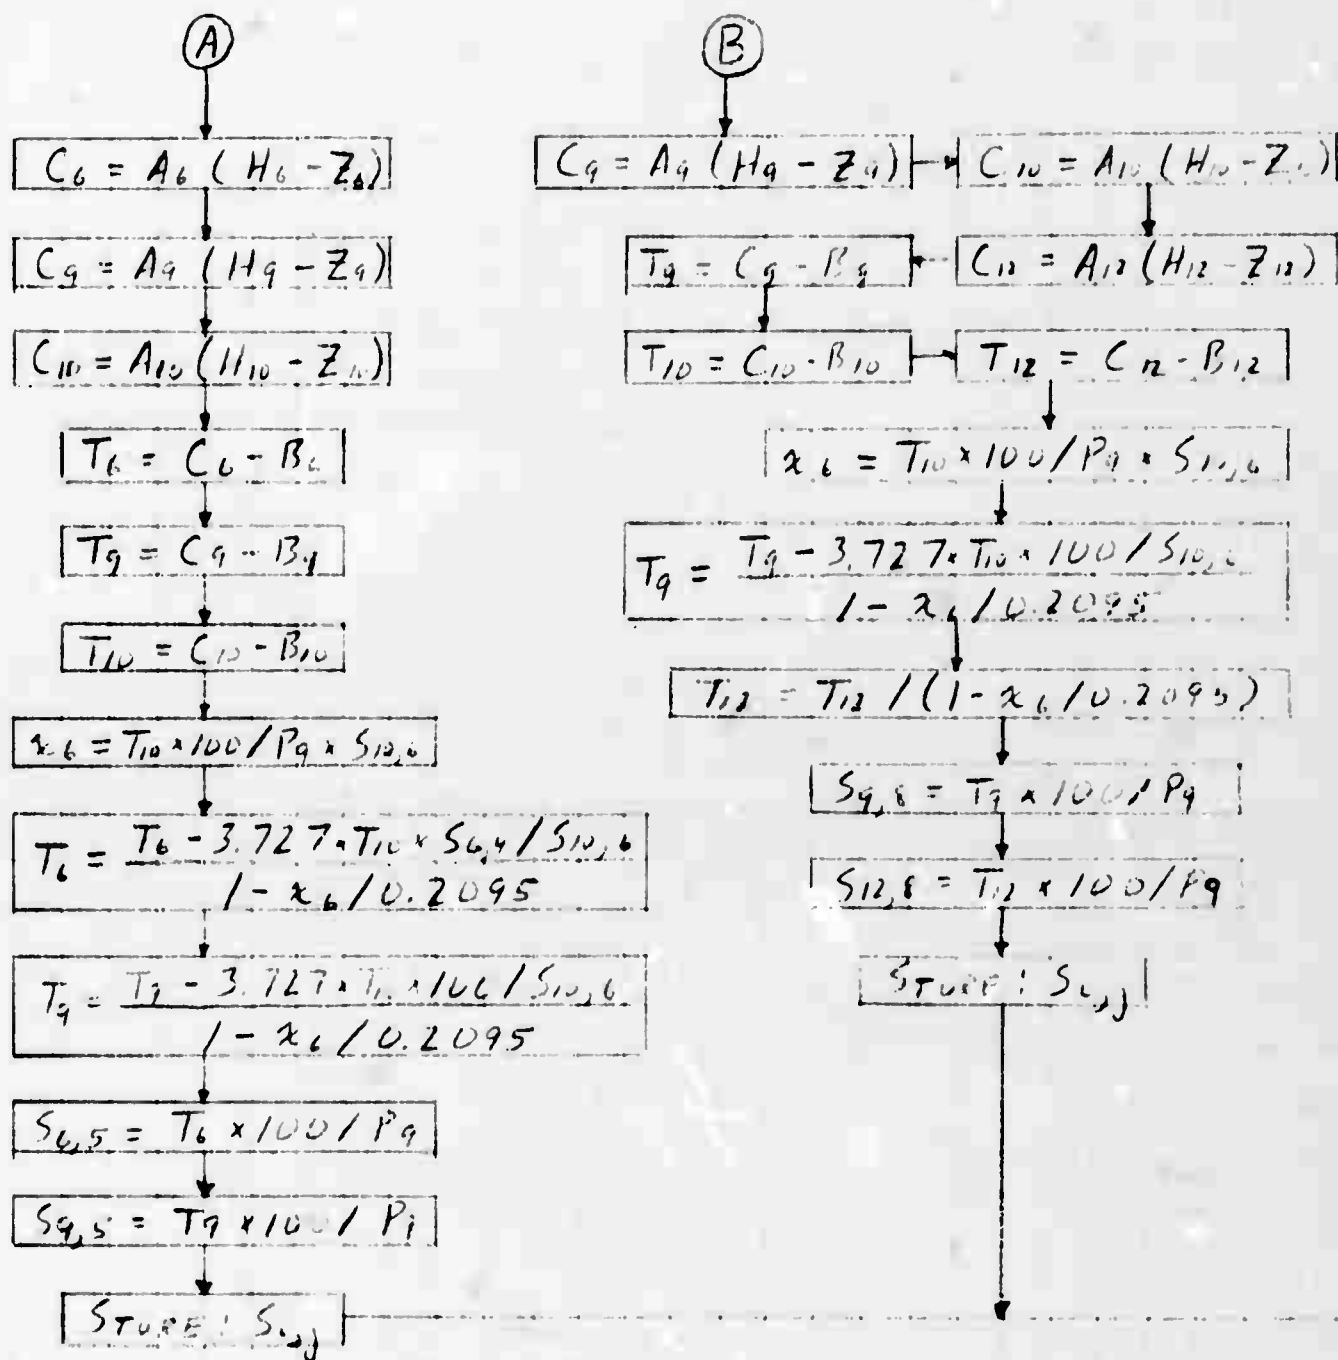 A
C6 = A6 (H6 - Z6)
C9 = A9 (H9 - Z9)
C10 = A10 (H10 - Z10)
T6 = C6 - B6
T9 = C9 - B9
T10 = C10 - B10
x6 = T10 × 100 / P9 × S10,6
T6 = T6 - 3.727 × T10 × S6,4 / S10,6
1 - x6 / 0.2095
T9 = T9 - 3.727 × T10 × 100 / S10,6
1 - x6 / 0.2095
S6,5 = T6 × 100 / P9
S9,5 = T9 × 100 / P9
STORE: Si,j
B
C9 = A9 (H9 - Z9)
C10 = A10 (H10 - Z10)
C12 = A12 (H12 - Z12)
T9 = C9 - B9
T10 = C10 - B10
T12 = C12 - B12
x6 = T10 × 100 / P9 × S10,6
T9 = T9 - 3.727 × T10 × 100 / S10,6
1 - x6 / 0.2095
T12 = T12 / (1 - x6 / 0.2095)
S9,8 = T9 × 100 / P9
S12,8 = T12 × 100 / P9
STORE: Si,j